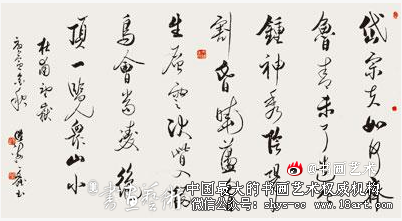 岱宗夫如何齊
魯青未了造化
鍾神秀陰陽
割昏曉蕩胸
生層雲決眥入歸
鳥會當凌絕
頂一覽眾山小
杜甫望嶽
庚寅金秋
@书画艺术
中国最大的书画艺术权威机构
微信公众号:shys-cc www.18art.com